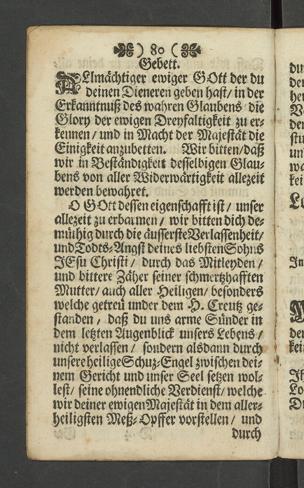 ) 80 (
Gebett.
ALmächtiger ewiger GOtt der du
deinen Dieneren geben hast / in der
Erkanntnuß des wahren Glaubens / die
Glory der ewigen Dreyfaltigkeit zu er-
kennen / und in Macht der Majestät die
Einigkeit anzubetten. Wir bitten / daß
wir in Beständigkeit desselbigen Glau-
bens von aller Widerwärtigkeit allezeit
werden bewahret.
O GOtt dessen eigenschafft ist / unser
allezeit zu erbarmen / wir bitten dich de-
müthig durch die äusserste Verlassenheit /
und Todts-Angst deines liebsten Sohns
JEsu Christi / durch das Mitleyden /
und bittere Zäher seiner schmertzhafften
Mutter / auch aller Heiligen / besonders
welche getreü under dem H. Creutz ge-
standen / daß du uns arme Sünder in
dem letzten Augenblick unsers Lebens /
nicht verlassen / sondern alsdann durch
unsere heilige Schuz-Engel zwischen dei-
nem Gericht und unser Seel setzen wol-
lest / seine ohnendliche Verdienst / welche
wir deiner ewigen Majestät in dem aller-
heiligsten Meß-Opffer vorstellen / und
durch